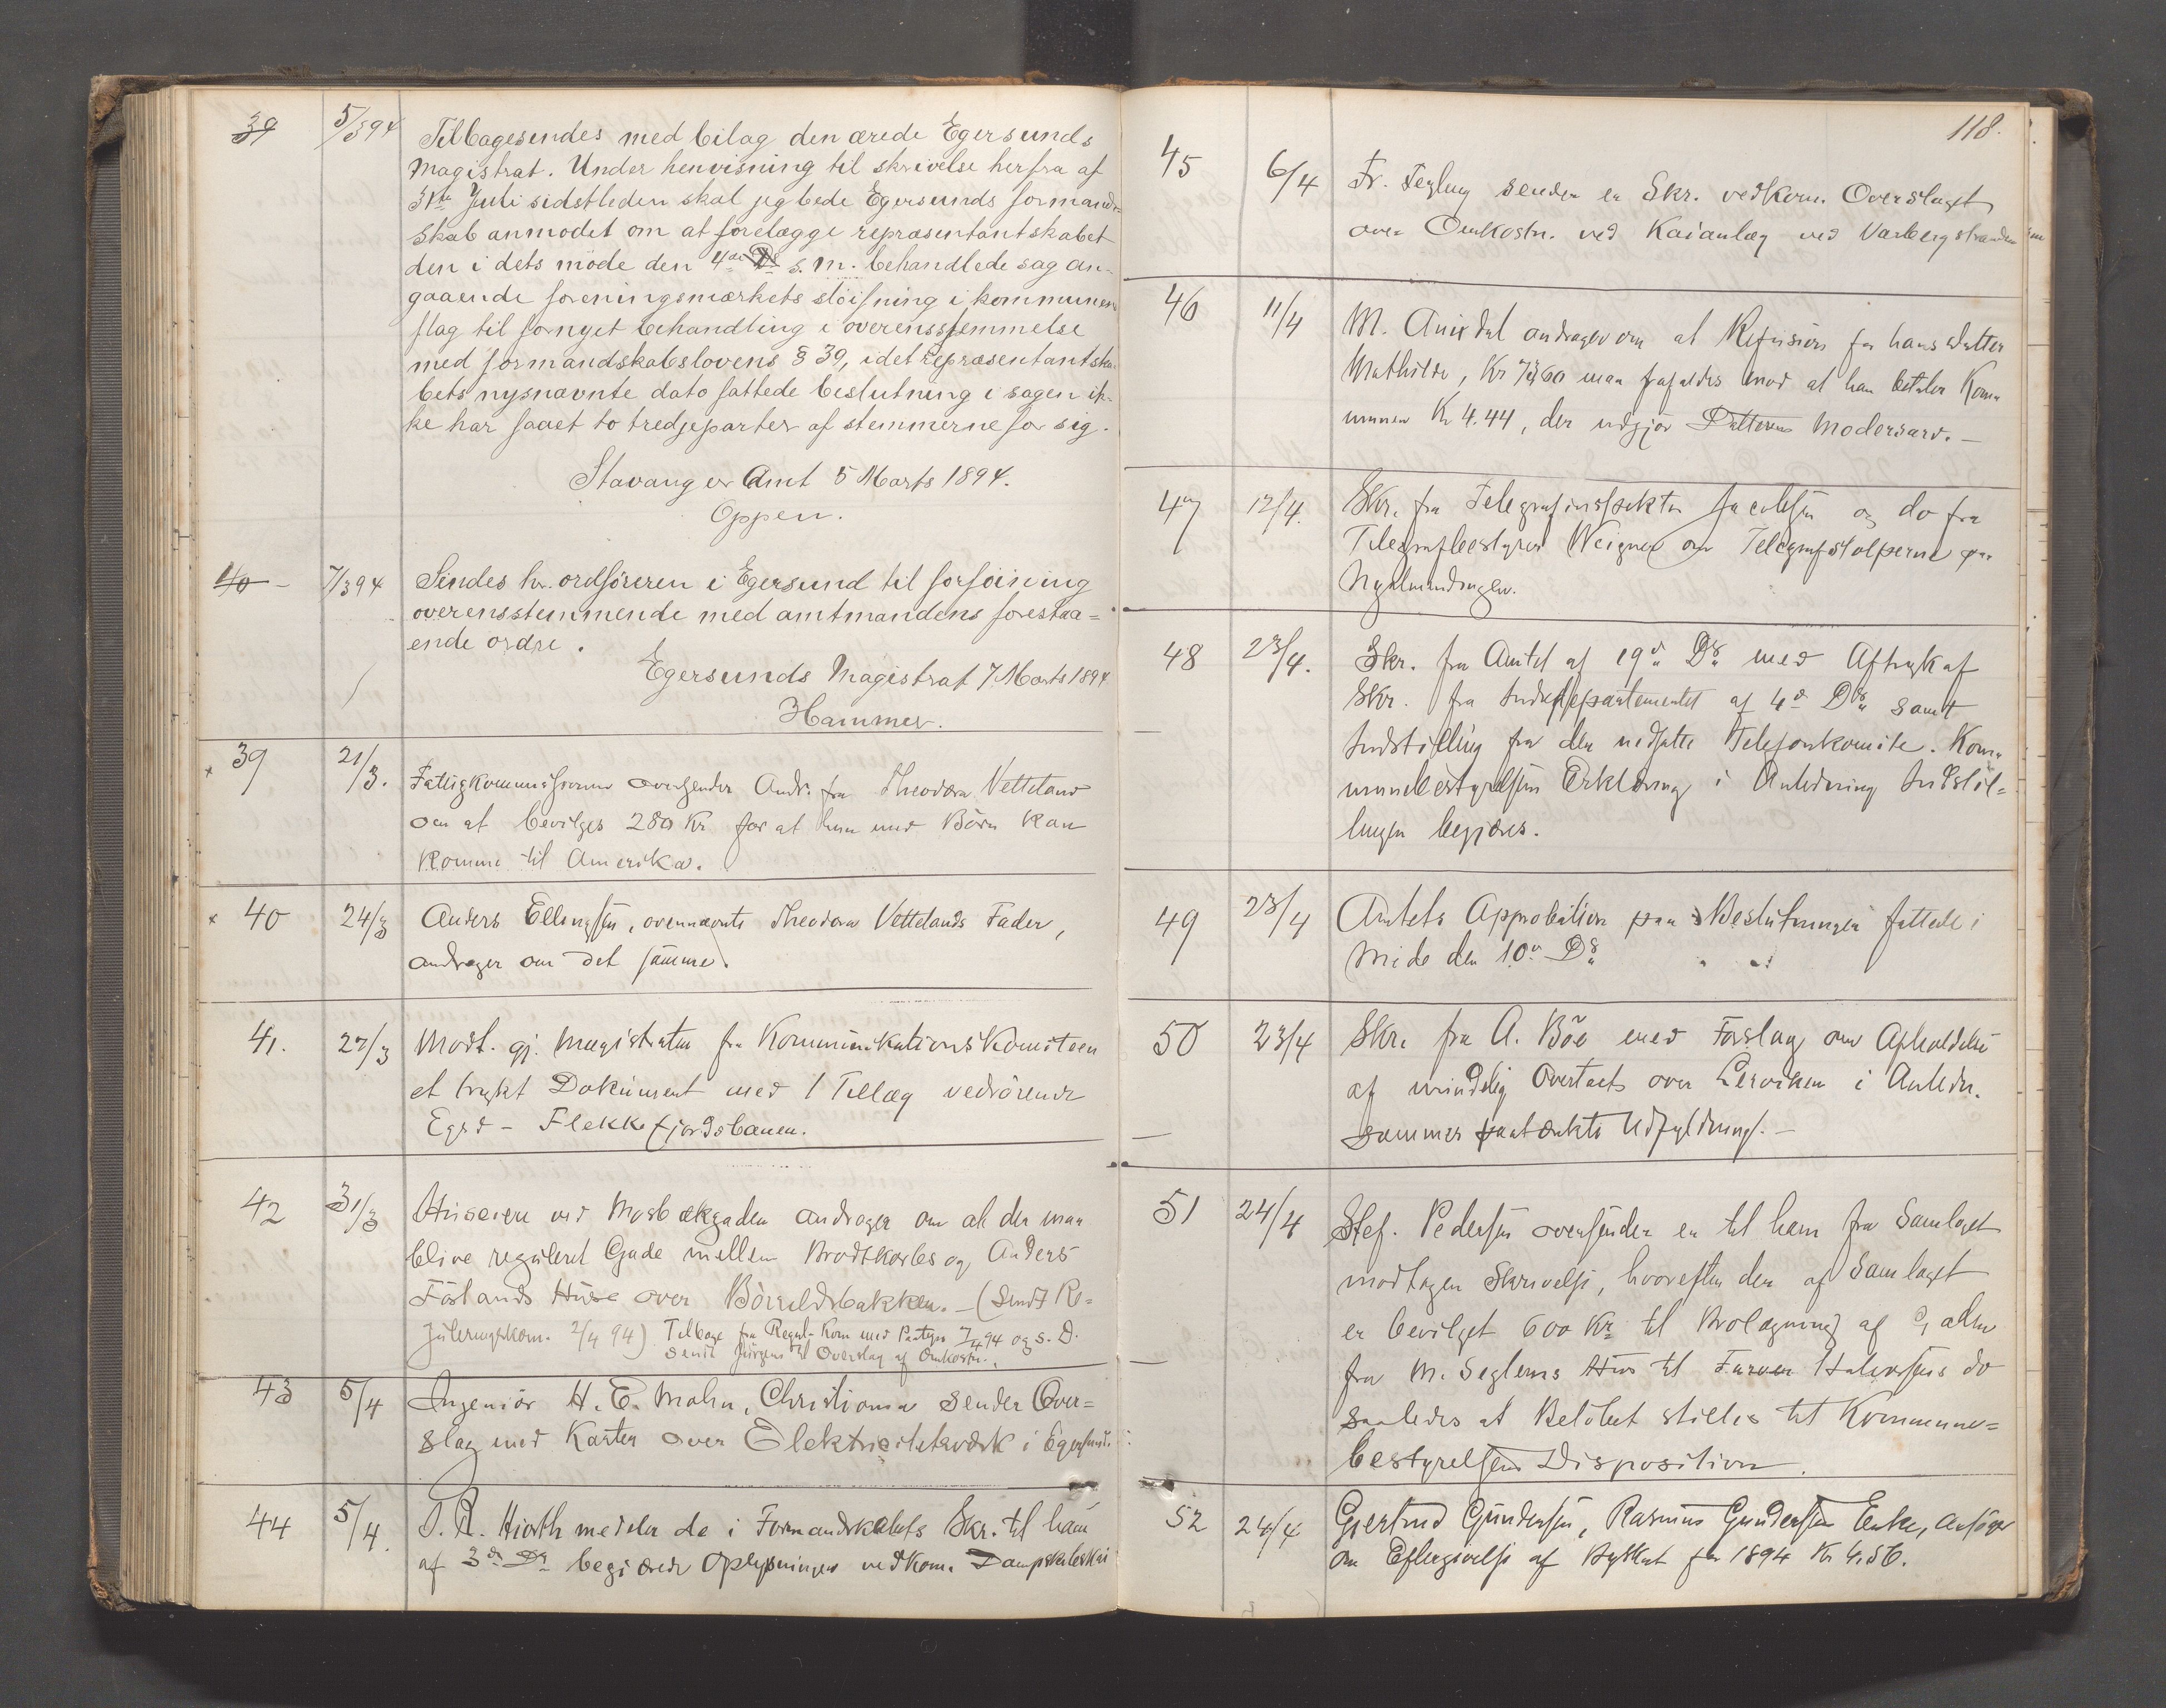 39 5/3 94 Tilbagesendes med bilag den ærede Egersunds
magistrat. Under henvisning til skrivelse herfra af
31te Juli sidstleden skal jeg bede Egersunds formand-
skab anmodet om at forelægge repræsentantskabet
den i dets møde den 4de s. m. behandlede sag an-
gaaende foreningsmærkets sløifning i kommunens
flag til fornyet behandling i overensstemmelse
med formandskabslovens § 39, idet repræsentantska-
bets nysnævnte dato fattede beslutning i sagen ik-
ke har faaet to tredjeparter af stemmerne for sig.
Stavanger Amt 5 Marts 1894.
Oppen.
40 - 7/3 94 Sendes hr. ordføreren i Egersund til forføining
overensstemmende med amtmandens forestaa=
ende ordre.
Egersunds Magistrat 7 Marts 1894
Hammer.
39 21/3. Fattigkommissionen oversender Andr. fra Theodora Vetteland
om at bevilges 280 Kr for at hun med Børn kan
komme til Amerika.
40 24/3 Anders Ellingsen, ovennævnte Theodora Vettelands Fader,
andrager om det samme.
41. 27/3 Modt. gj. Magistraten fra Kommunikationskomiteen
et trykt Dokument med 1 Tillæg vedrørende
Egsd - Flekkefjordsbanen.
42 31/3 Huseiere ved Mosbækgaden andrager om at der maa
blive reguleret Gade mellem Brodtkorbs og Anders
Føslands Huse over Bøckildsbakken. - (Sendt Re=
guleringskom. 2/4 94) Tilbage fra Regul-Kom med 7/4 94 og s. D.
sendt Jürgens til Overslag af Omkostn.
43 5/4 Ingeniør H. E. Mohn, Christiania sender Over=
slag med Karter over Elektricitetsværk i Egersund.
44 5/4. J. R. Hiorth meddeler de i Formandskabets Skr. til ham
af 3de Ds begjærede Oplysninger vedkom. Dampskibskai
118.
45 6/4 Fr. Feyling sender en Skr. vedkom. Overslaget
over Omkostn. ved Kaianlæg ved Varbergstranden
46 11/4 M. andrager om at Refusion for hans Datter
Mathilde, Kr 73,60 maa frafaldes mod at han betaler Kom=
munen Kr 4.44, der udgjør Datterens Modersarv. -
47 12/4. Skr. fra Telegrafinspektør Jacobsen og do fra
Telegrafbestyrer Weigner om Telegrafstolperne paa
Nyalmindingen.
48 23/4. Skr. fra Amtet af 19de Ds med Aftryk af
Skr. fra Indredepartementet af 4de Ds samt
Indstilling fra den nedsatte Telefonkomite. Kom=
munebestyrelsens Erklæring i Anledning Indstil=
lingen begjæres.
49 23/4 Amtets Approbation paa Beslutninger fattede i
Møde den 10de Ds
50 23/4 Skr. fra A. Bøe med Forslag om Afholdelse
af mindelig Overtaxt over Lerviken i Anledn.
sammes paatænkte Udfyldning. -
51 24/4 Stef. Pedersen oversender en til ham fra Samlaget
modtagen Skrivelse, hvorefter der af Samlaget
er bevilget 600 Kr til Brolægning af Gaden
fra M. Seglems Hus til Farver Halvorsens do
saaledes at Beløbet stilles til Kommune=
bestyrelsens Disposition.
52 24/4 Gjertrud Gundersen, Rasmus Gundersen Enke, ansøger
om Eftergivelse af Byskat for 1894 Kr 4.56.